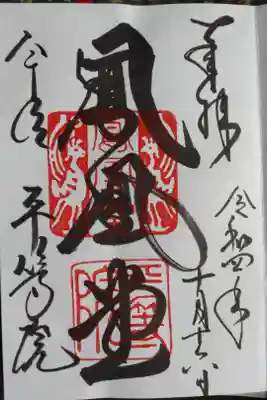 奉拝
令和四年
十月十六日
鳳凰堂
平等院